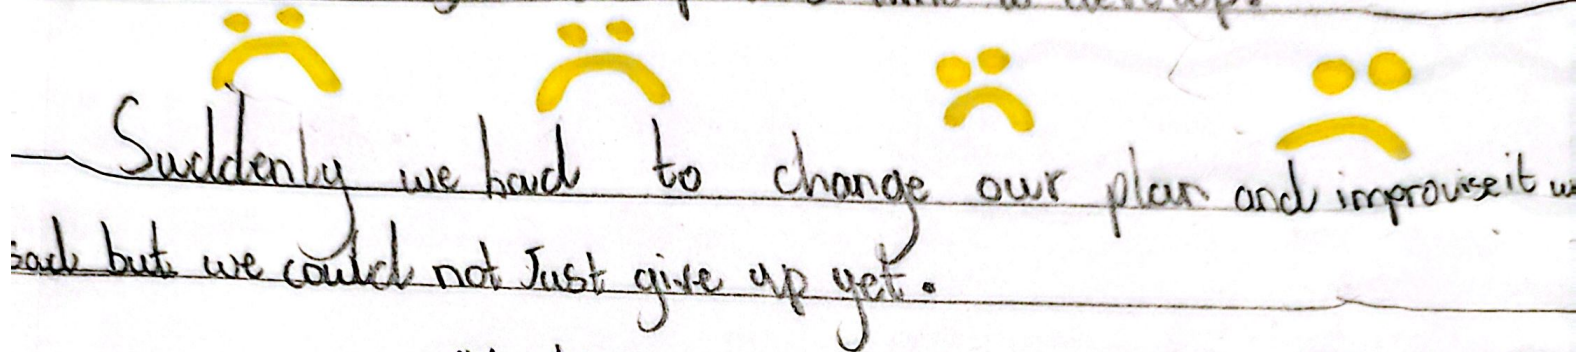 to develop.
Suddenly we had to change our plan and improvise it
sad but we could not Just give up yet.